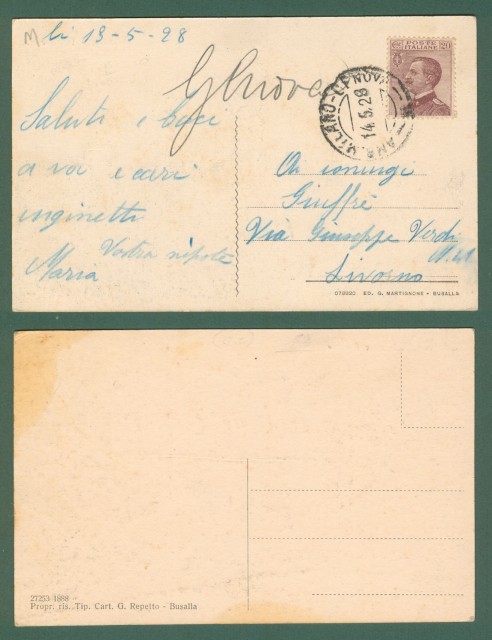 li 13-5-28
Genova
POSTE ITALIANE
20
MILANO-GENOVA
14.5.28
AMB.
Saluti e baci
a voi e cari
inginetti
Vostra nipote
Maria
Ai coniugi
Giuffrè
Via Giuseppe Verdi
Livorno
072020 ED. G. MARTIGNONE - BUSALLA
27253-1888
Propr. ris. Tip. Cart. G. Repetto - Busalla